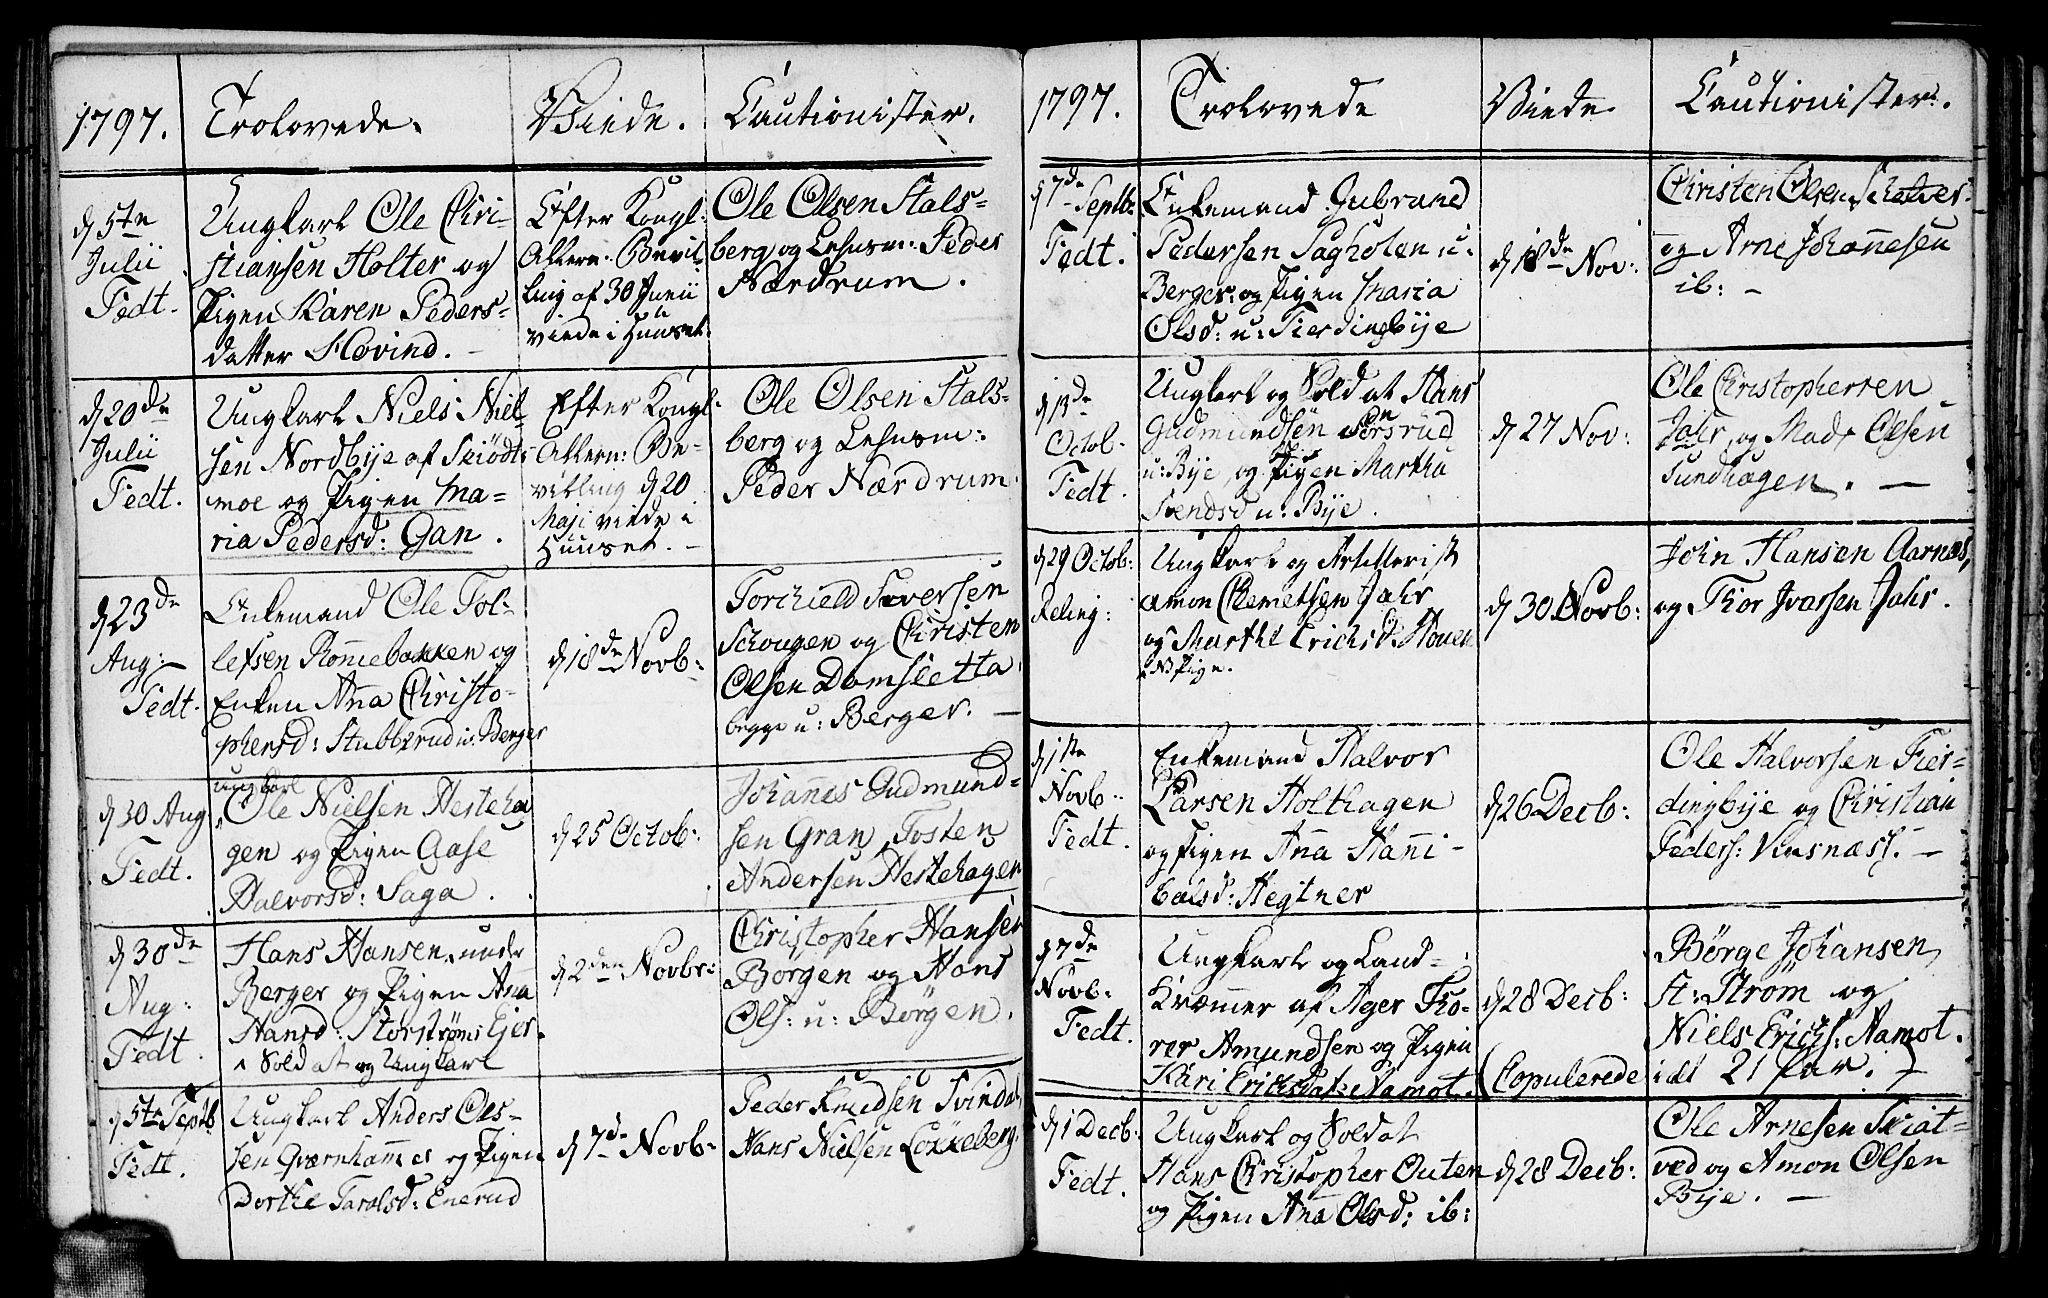 1797.
Trolovede.
Viede.
Cautionister.
d 5te
Julii
Fedt.
Ungkarl Ole Chri-
stiansen Holter og
Pigen Karen Peders-
datter Hovind. -
Efter Kongl:
Allern: Bevil-
ling af 30 Junii
viede i Huuset.
Ole Olsen Stals-
berg og Lehnsm: Peder
Nærdrum.
d 20de
Julii
Fedt.
Ungkarl Niels Niel-
sen Nordbye af Skiødts-
moe og Pigen Ma-
ria Pedersd: Gan.
Efter Kongl.
Allern: Be-
villing d 20
Maji viede i
Huuset. -
Ole Olsen Stals-
berg og Lehnsm:
Peder Nærdrum.
d 23de
Aug:
Fedt.
Enkemand Ole Tol-
lefsen Rønnebakken og
Enken Ana Christo-
phersd: Stubberud u: Berger
d 18de Novb:
Torchield Siversen
Schougen og Christen
Olsen Damsletta
begge u: Berger. -
d 30 Aug
Fedt.
ungkarl
Ole Nielsen Hesteha-
gen og Pigen Aase
Halvorsd: Saga.
d 25 Octob:
Johannes Gudmund-
sen Gran, Tosten
Andersen Hestehagen
d 30de
Aug:
Fedt.
Hans Hansen under
Berger og Pigen Ana
Hansd: Storstrøms Eier.
Soldat og Ungkarl
d 2den Novbr:
Christopher Hansen
Børgen og Hans
Ols: u: Børgen.
d 5te Septb
Fedt.
Ungkarl Anders Ols-
sen Qværnhammer og Pigen
Dorthe Taralsd: Enerud
d 7de Novb:
Peder Knudsen Tvindal,
Hans Nielsen Løkkeberg.
1797.
Trolovede
Viede
Cautionister.
d 7de Septb:
Fedt.
Enkemand Gubrand
Pedersen Sagholen u:
Berger: og Pigen Maria
Olsd: u: Fierdingbye
d 18de Nov:
Christen Olsen
og Arne Johannesen
ib: -
d 13de
Octob.
Fedt.
Ungkarl og Soldat Hans
Gudmundsen Sørsrud
u: Bye, og Pigen Martha
Svendsd u: Bye.
d 27 Nov:
Ole Christophersen
Jahr og Mads Olsen
Sundhagen. -
d 29 Octob:
Reling:
Ungkarl og Artillerist
Amon Clemetsen Jahr
og Marthe Erichsd. Houen
Pige.
d 30 Novb:
John Hansen Aarnæs,
og Thor Ivarsen Jahr.
d 1ste
Novb:
Fedt.
Enkemand Halvor
Larsen Holthagen
og Pigen Ana Hanni-
balsd: Hegtner
d 26 Decb:
Ole Halvorsen Fier-
dingbye og Christian
Peders: Viisnæss. -
d 7de
Novb:
Fedt.
Ungkarl og Land-
Kræmmer af Ager Tho-
rer Amundsen og Pigen
Kari Erichsdat: Aamot.
d 28 Decb:
(Copulerede
Børge Johansen
st: Strøm og
Niels Erichs: Aamot.
idt 21 Par. )
d 1 Decb:
Fedt.
Ungkarl og Soldat
Hans Christopher Outen
og Pigen Ana Olsd: ib:
d 28 Decb:
Ole Arnesen Skiat-
ved og Amon Olsen
Bye. -